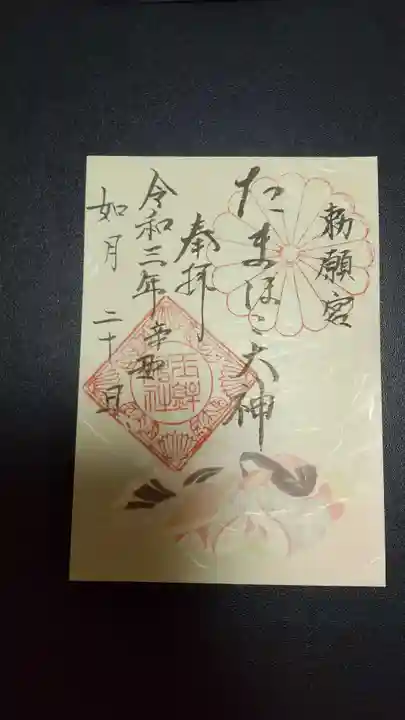 勅願宮
たまほこ大神
奉拝
令和三年辛丑
如月 二十一日
玉鉾神社